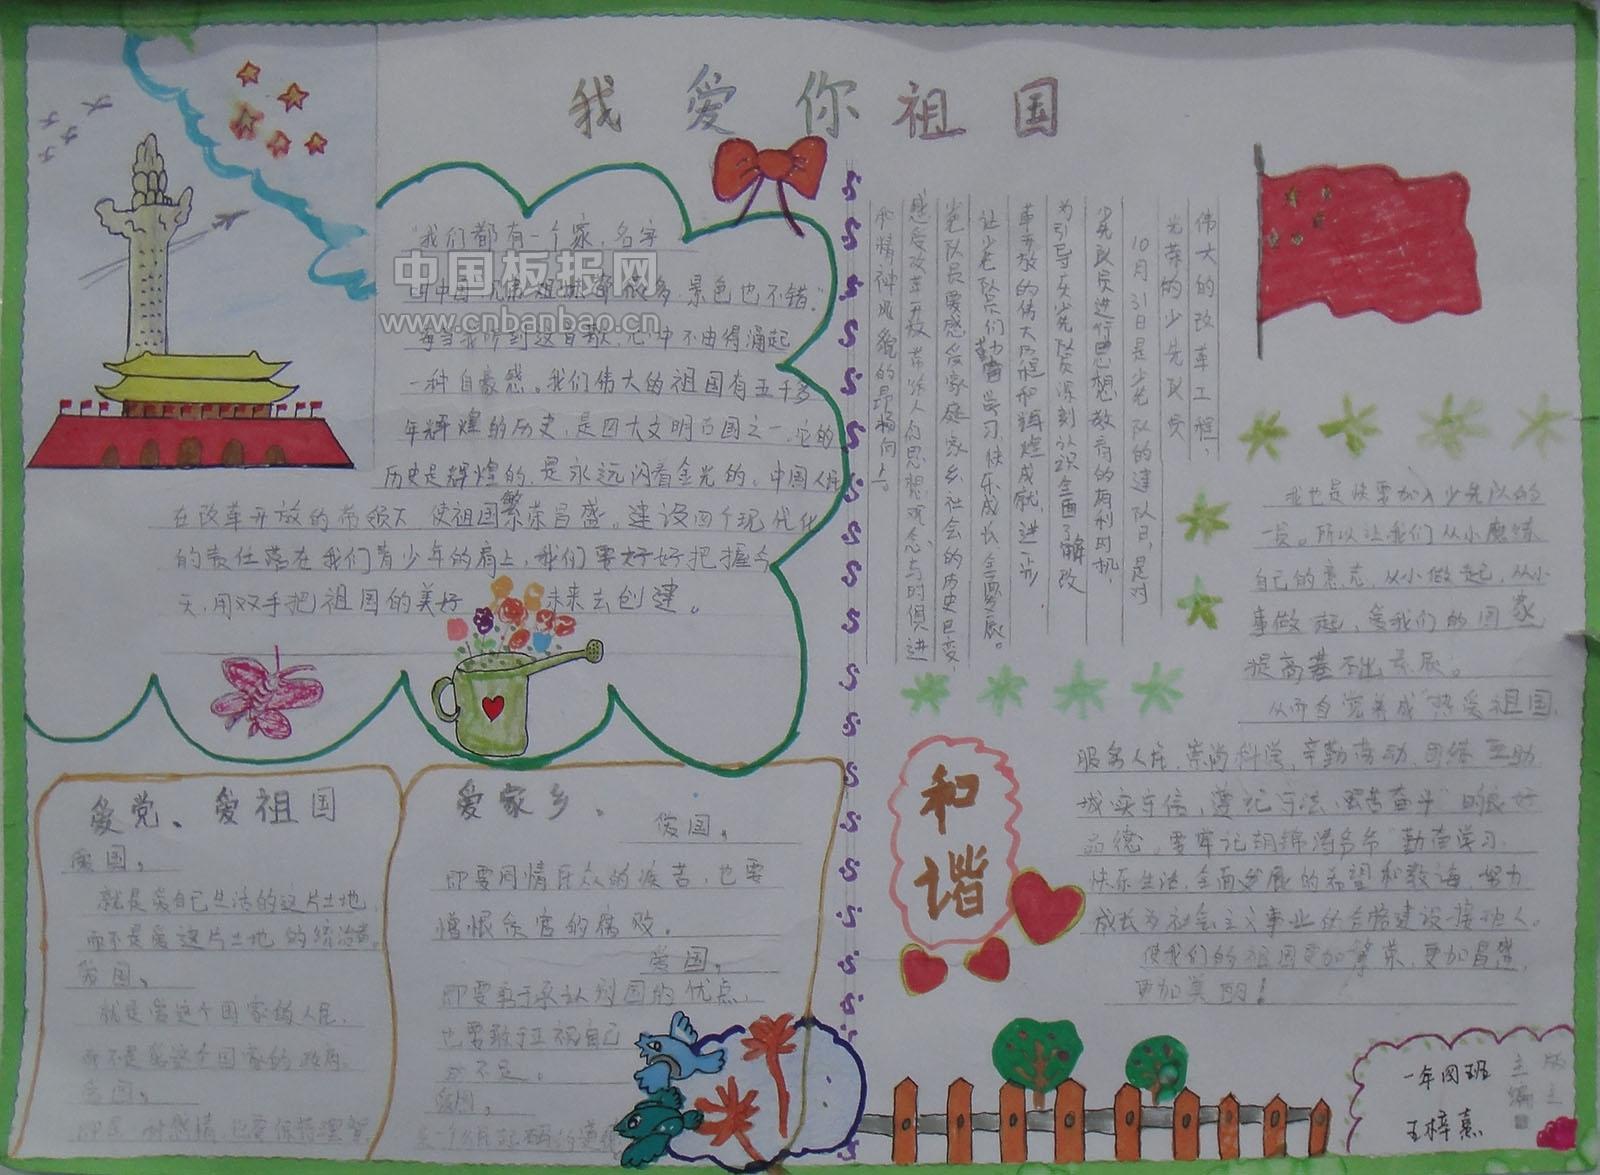 我爱你祖国
"我们都有一个家,名字
景色也不错."
每当我听到这首歌,心中不由得涌起
一种自豪感。我们伟大的祖国有五千多
年辉煌的历史,是四大文明古国之一,它的
历史是辉煌的,是永远闪着金光的。中国人民
在改革开放的带领下 使祖国繁荣昌盛。建设四个现代化
的责任落在我们青少年的肩上,我们要好好把握今
天,用双手把祖国的美好未来去创建。
中国板报网
www.cnbanbao.cn
伟大的改革工程,
光荣的少先队员
10月31日是少先队的建队日,是对
少先队员进行思想教育的有利时机,
为引导广大少先队员深刻认识全面了解改
革开放的伟大历程和辉煌成就,进一步
让少先队员们勤奋学习、快乐成长、全面发展。
少先队员要感受家庭、家乡、社会的历史巨变,
感受改革开放带给人们思想、观念、与时俱进
和精神风貌的昂扬向上。
我也是快要加入少先队的
一员。所以让我们从小磨炼
自己的意志,从小做起,从小
事做起,爱我们的国家
从而自觉养成"热爱祖国,
服务人民,崇尚科学,辛勤劳动,团结互助
诚实守信,遵纪守法,艰苦奋斗"的良好
品德。要牢记胡锦涛爷爷"勤奋学习、
快乐生活、全面发展"的希望和教诲,努力
成长为社会主义事业的合格建设接班人。
使我们的祖国更加繁荣,更加昌盛,
更加美丽!
爱党、爱祖国
爱国,
就是爱自己生活的这片土地
而不是爱这片土地的统治者。
爱国,
就是爱这个国家的人民,
而不是爱这个国家的政府。
爱国,
也要保持理智
爱家乡、
爱国,
即要同情民众的疾苦,也要
憎恨贪官的腐败。
爱国,
即要勇于承认别国的优点,
也要敢于正视自己
的不足。
爱国,
和谐
一年四班
王梓熹
主编